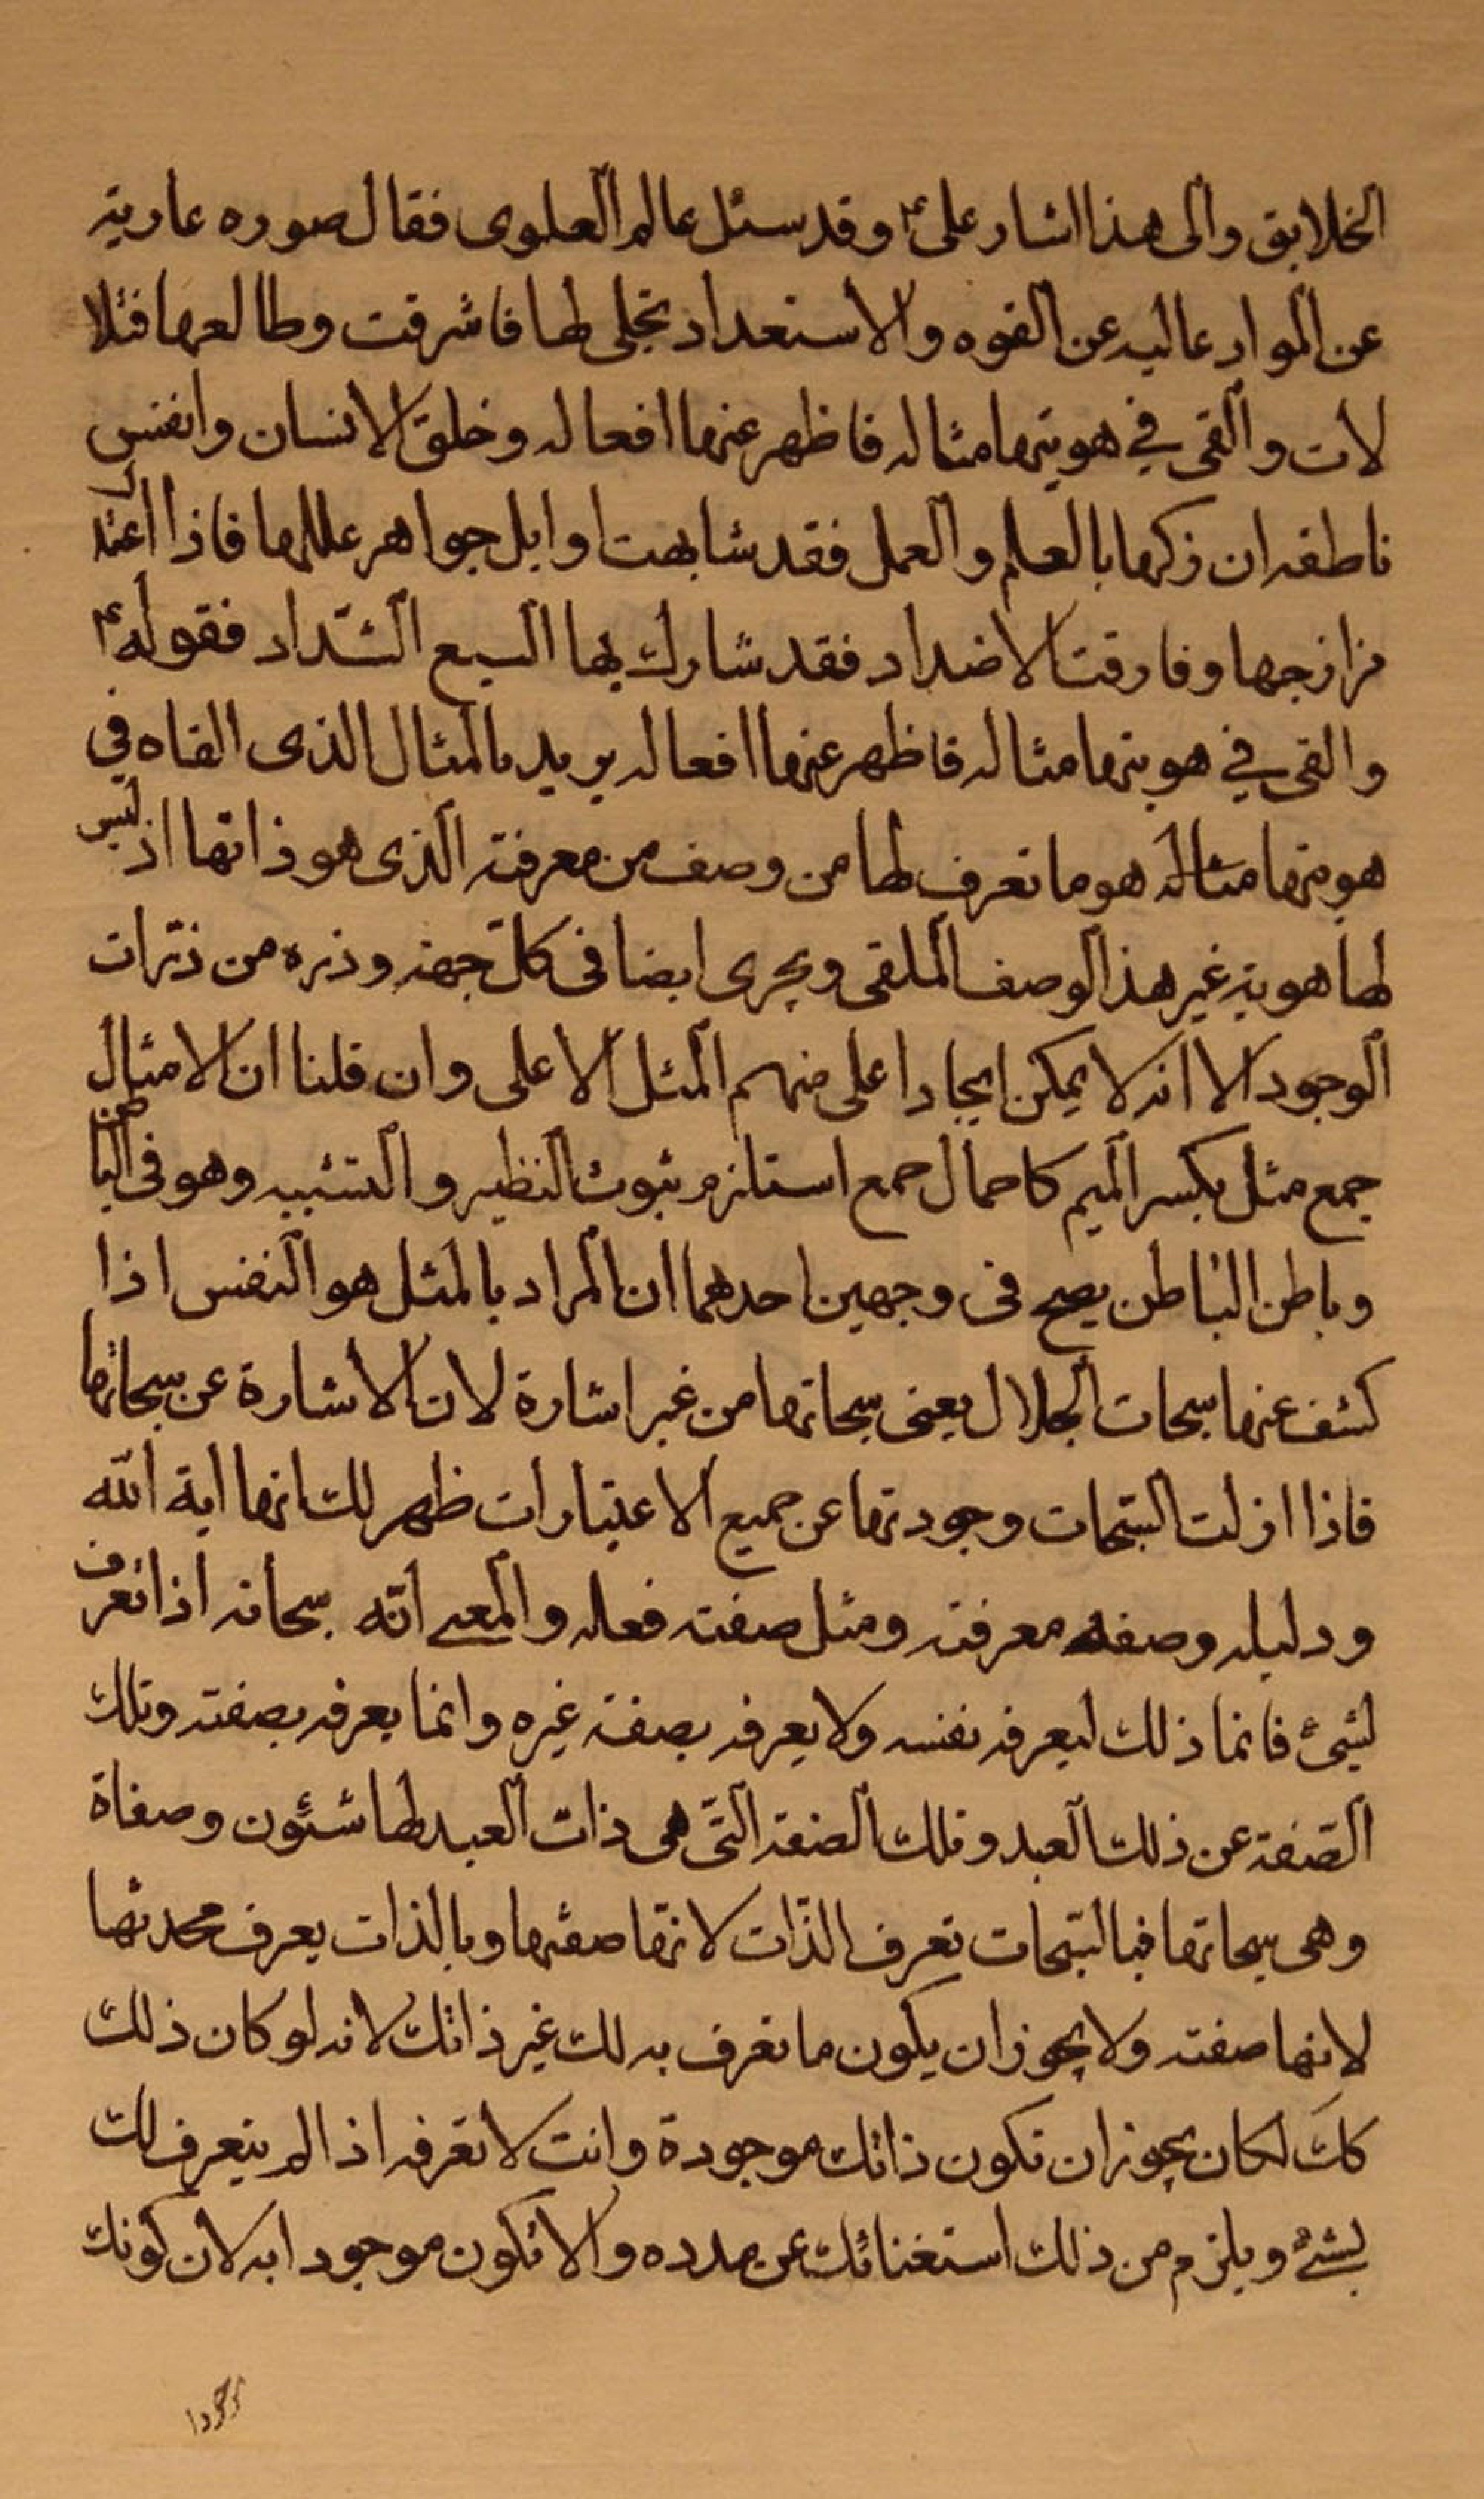 الخلايق والى هذا اشار على ؏ وقد سئل عالم العلوى فقال صوره عارية
عن المواد عاليه عن القوه والاستعداد تجلى لها فاشرقت وطالعها فتلا
لات والقى في هويتها مثاله فاظهر عنها افعاله وخلق الانسان وا نفس
ناطقه ان زكها بالعلم والعمل فقد شابهت اوايل جواهر عللها فاذا اعتدل
مزازجها وفارقت الاضداد فقد شارك بها السبع الشداد فقوله ؏
والقى في هويتها مثاله فاظهر عنها افعاله يريد بالمثال الذى القاه في
هويتها مثاله هو ما تعرف لها من وصف من معرفته الذى هو ذاتها اذ ليس
لها هوية غير هذ الوصف الملقى ويجرى ايضا فى كل جهة وذره من ذرّات
الوجود الا انه لا يمكن ايجاد اعلى منهم المثل الاعلى وان قلنا ان الامثال
جمع مثل بكسر الميم كاحمال جمع استلزم ثبوت النظير والتشبيه وهو فى الباطن
وباطن الباطن يصح فى وجهين احدهما ان المراد بالمثل هو النفس اذا
كشف عنها سبحات الجلال يعنى سبحاتها من غير اشارة لان الاشارة عن سبحاتها
فاذا ازلت السّبحات وجودتها عن جميع الاعتبارات ظهر لك انها اية الله
ودليله وصفة معرفته ومثل صفته فعله والمعنى انّه سبحانه اذا تعرف
لشئ فانما ذلك ليعرفه نفسه ولا يعرفه بصفة غيره وانما يعرفه بصفته وتلك
الصّفة عن ذلك العبد وتلك الصفة التّى هى ذات العبد لها شئون وصفاة
وهى سبحاتها فبالسّبحات تعرف الذّات لانّها صفتها وبالذات يعرف محدثها
لانها صفته ولا يجوز ان يكون ما تعرف به لك غير ذاتك لانه لو كان ذلك
كك لكان يجوز ان تكون ذاتك موجودة وانت لا تعرفه اذا لم يتعرف لك
بشئ ويلزم من ذلك استغنائك عن مدده والا تكون موجودا به لان كونك
موجودا